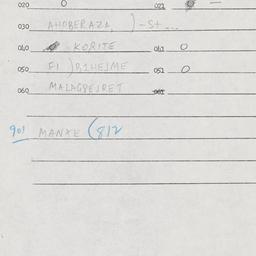 020 O 021 —
030 AHOBERAZA ) - St ...
040 KORITE 041 O
050 FI ) DIHEJME 051 O
060 MALAGPEJRET 061
901 MANXE (812